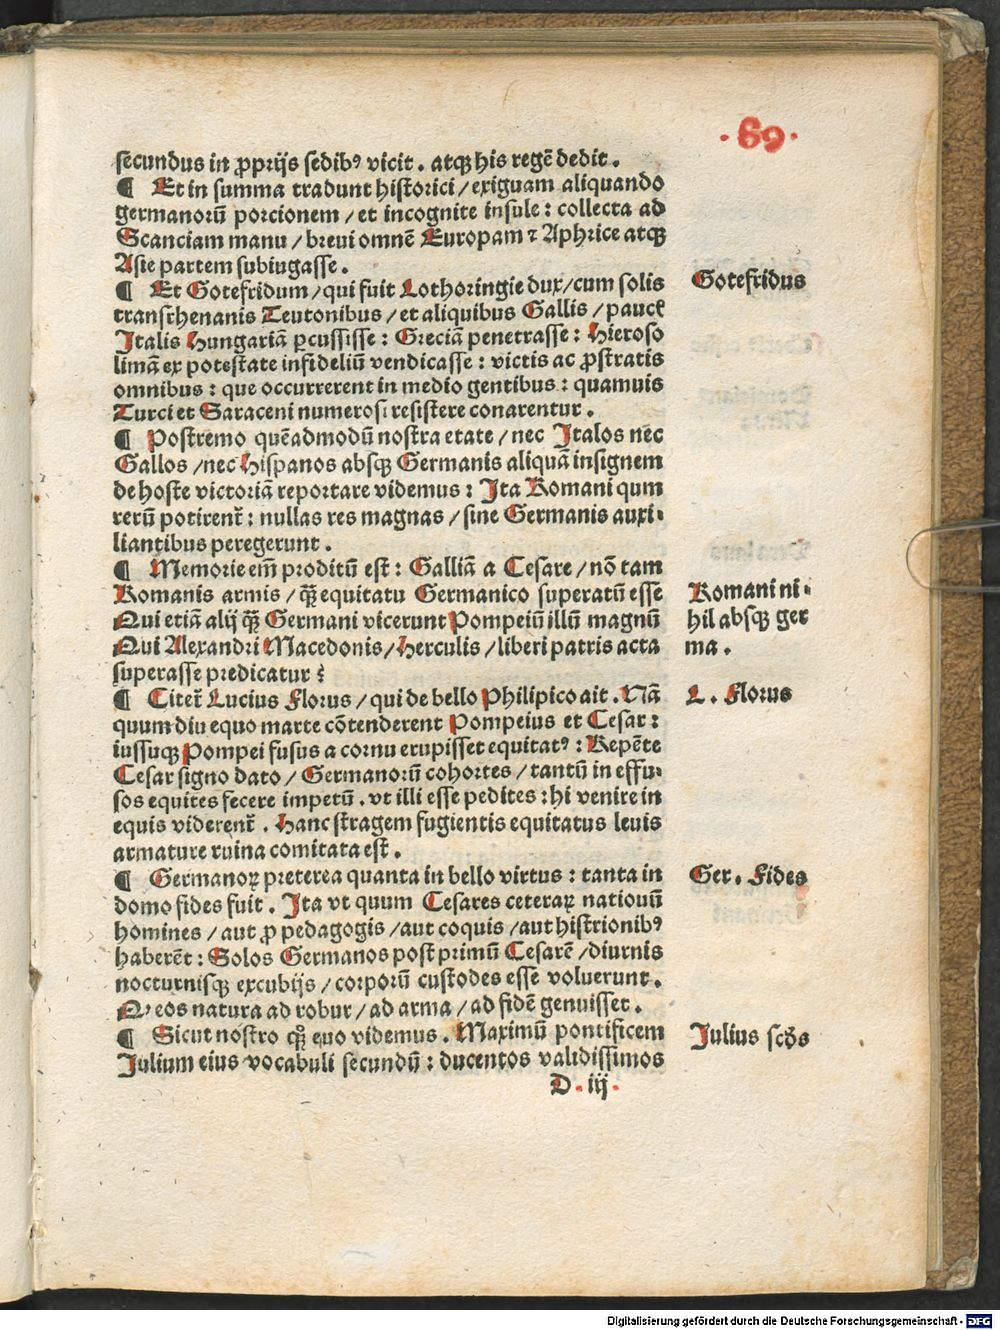 · 69 ·
secundus in ꝓprijs sedibꝰ vicit . atqꝫ his regē dedit .
¶ Et in summa tradunt historici / exiguam aliquando
germanorū porcionem / et incognite insule : collecta ad
Scanciam manu / breui omnē Europam ⁊ Aphrice atqꝫ
Asie partem subiugasse .
¶ Et Gotefridum / qui fuit Lothoringie dux / cum solis
Gotefridus
transrhenanis Teutonibus / et aliquibus Gallis / paucꝭ
Italis Hungariā ꝑcussisse : Greciā penetrasse : Hieroso
limā ex potestate infideliū vendicasse : victis ac ꝓstratis
omnibus : que occurrerent in medio gentibus : quamuis
Turci et Saraceni numerosi resistere conarentur .
¶ Postremo quēadmodū nostra etate / nec Italos nec
Gallos / nec Hispanos absqꝫ Germanis aliquā insignem
de hoste victoriā reportare videmus : Ita Romani qum
rerū potirent᷑ : nullas res magnas / sine Germanis auxi-
liantibus peregerunt .
¶ Memorie em̄ proditū est : Galliā a Cesare / nō tam
Romanis armis / qꝫ̄ equitatu Germanico superatū esse
Romani ni-
Qui etiā alij qꝫ̄ Germani vicerunt Pompeiū illū magnū
hil absqꝫ ger
Qui Alexandri Macedonis / Herculis / liberi patris acta
ma .
superasse predicatur ?
¶ Citer᷑ Lucius Florus / qui de bello Philipico ait . Nā
L . Florus
quum diu equo marte cōtenderent Pompeius et Cesar :
iussuqꝫ Pompei fusus a cornu erupisset equitatꝰ : Repēte
Cesar signo dato / Germanorū cohortes / tantū in effu-
sos equites fecere impetū . vt illi esse pedites : hi venire in
equis viderent᷑ . Hanc stragem fugientis equitatus leuis
armature ruina comitata est .
¶ Germanoꝝ preterea quanta in bello virtus : tanta in
Ger . Fides
domo fides fuit . Ita vt quum Cesares ceteraꝝ nationū
homines / aut ꝓ pedagogis / aut coquis / aut histrionibꝰ
haberēt : Solos Germanos post primū Cesarē / diurnis
nocturnisqꝫ excubijs / corporū custodes esse voluerunt .
Qꝰ eos natura ad robur / ad arma / ad fidē genuisset .
¶ Sicut nostro qqꝫ euo videmus . Maximū pontificem
Julius scd̄s
Julium eius vocabuli secundū : ducentos validissimos
D . iij .
Digitalisierung gefördert durch die Deutsche Forschungsgemeinschaft - DFG